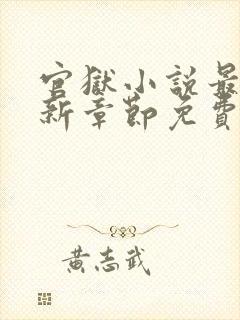 官獄小說最
新章節免費
黃志武